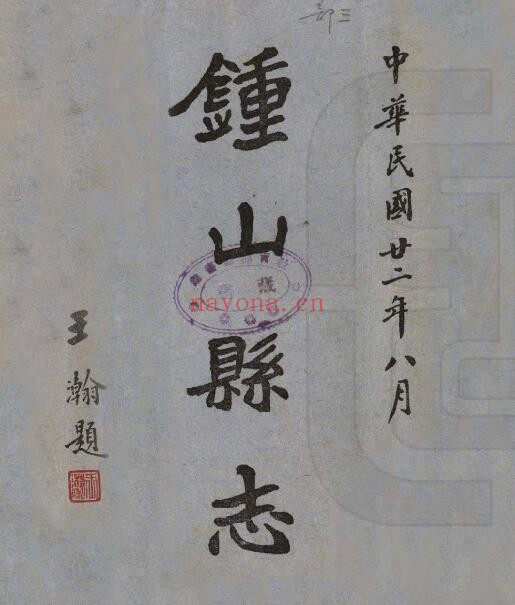 三部
中華民國廿二年八月
鍾山縣志
王瀚題
nayona.cn